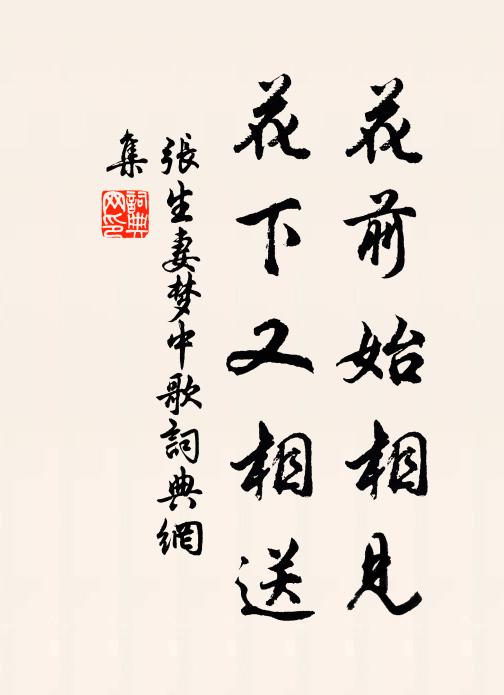 花前始相見
花下又相送
張生妻梦中歌詞典網
集
詞典
网印